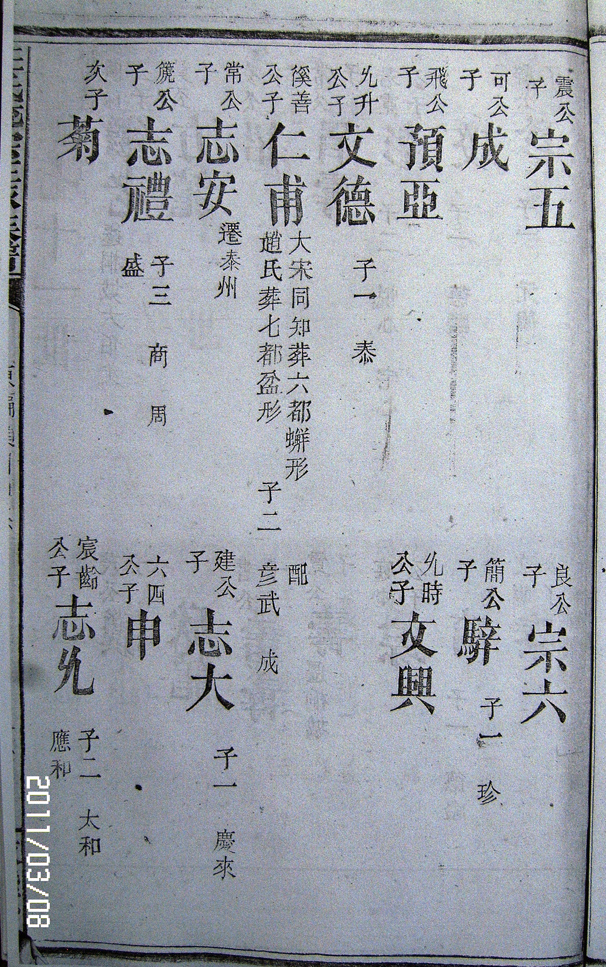 震公子 宗五
良公子 宗六
可公子 成
簡公子 騂 子一 珍
飛公子 預亞
允時公子 文興
允升公子 文德 子一 泰
徯善公子 仁甫 大宋同知葬六都蠏形 配
趙氏葬七都盆形 子二 彦武 成
常公子 志安 遷泰州
建公子 志大 子一 慶來
箎公子 志禮 子三 商 周
盛
六四公子 申
次子 菊
宸齡公子 志允 子二 太和
應和
2011/03/08